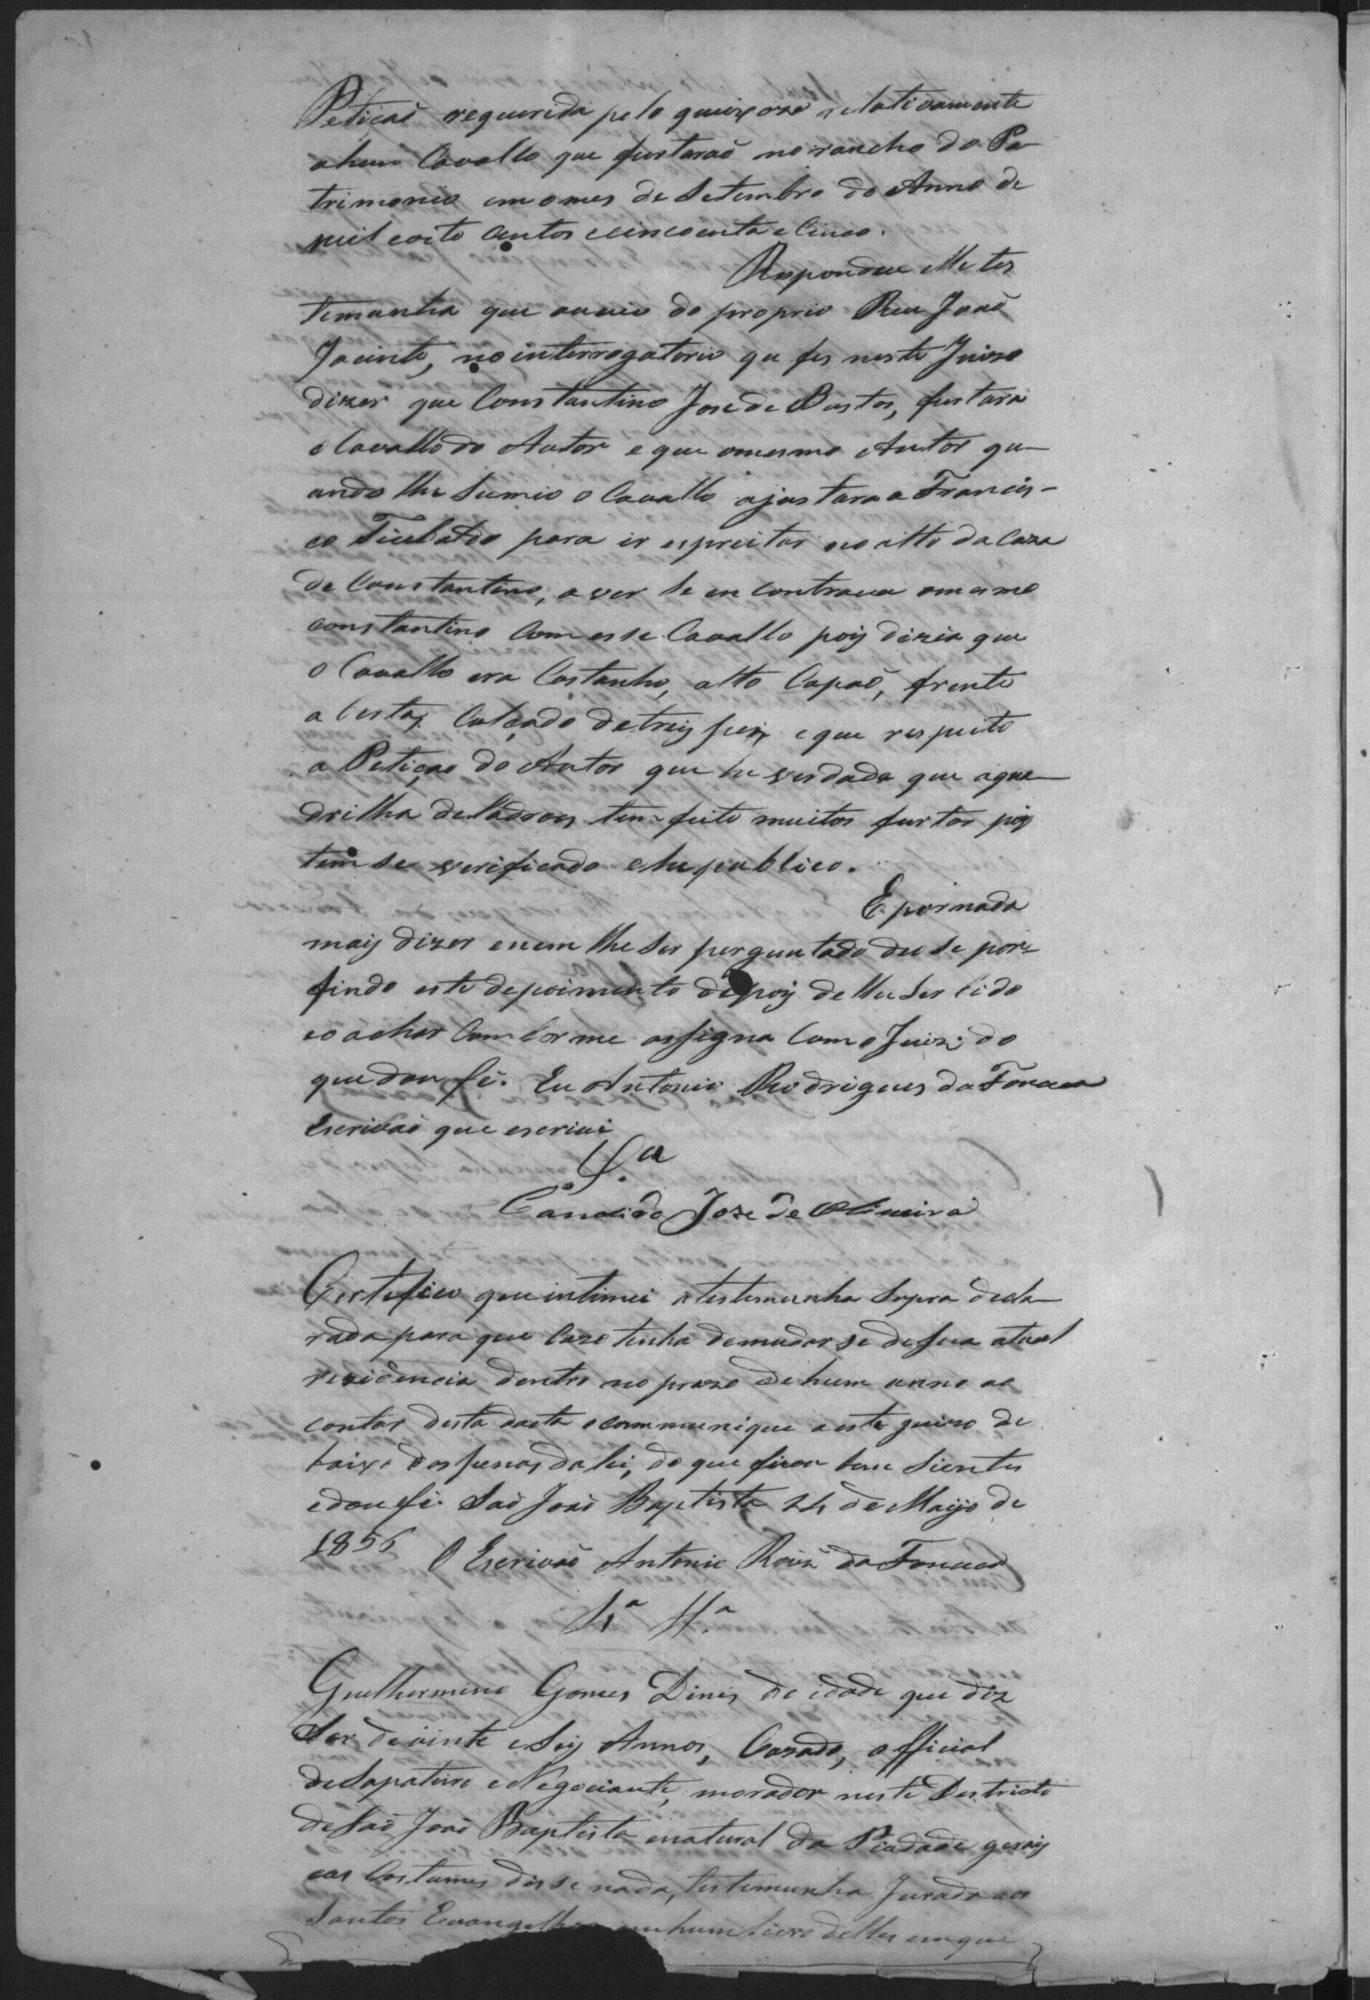 Petiçaõ requerida pelo queixozo relativamente
a hum Cavallo que furtaraõ no rancho do Pa-
trimonio em o mes de Setembro do Anno de
mil e oito centos e cincoenta e cinco.
Respondeu elle tes
temunha que ouvio do proprio Reu Joaõ
Jacinto, no interrogatorio que fes neste Juizo
dizer que Constantino Jose de Bastos, furtara
o Cavallo do Autor e que o mesmo Autor qu-
ando lhe sumio o Cavallo ajustara a Francis-
co para ir espreitar no alto da Caza
de Constantino, a ver se encontrava o mesmo
Constantino com esse Cavallo pois dizia que
o Cavallo era Castanho, alto Capaõ, frente
aberta, Calçado de treis peis, e que respeito
a Petiçaõ do Autor que he verdade que a qua-
drilha de Ladrois tem feito muitos furtos pois
tem se verificado e he publico.
E por nada
mais dizer e nem lhe ser perguntado deu se por
findo este depoimento depois de lhe ser lido
e o achar comforme assigna com o Juiz do
que dou fé. Eu Antonio Rodrigues da Fonceca
Escrivaõ que escrivi
Candido Joze de Oliveira
Certefico que intimei a testemunha supra decla-
rada para que cazo tenha de mudar se de sua atual
rezidencia dentro no prazo de hum anno a
contar desta data o communique a este Juizo de
baixo das penas da lei, do que ficou bem siente
e dou fé. Saõ Joaõ Baptista 24 de Mayo de
1856 O Escrivaõ Antonio Roiz da Fonceca
4ª Tª
Guelhermino Gomes Dinis de idade que diz
Ser de vinte e Seis Annos, Cazado, official
de Sapateiro e Negociante, morador neste Destricto
de Saõ Joaõ Baptista e natural da Piadade gerais
e aos Costumes disse nada, testemunha Jurada aos
Santos em hum livro delles em que